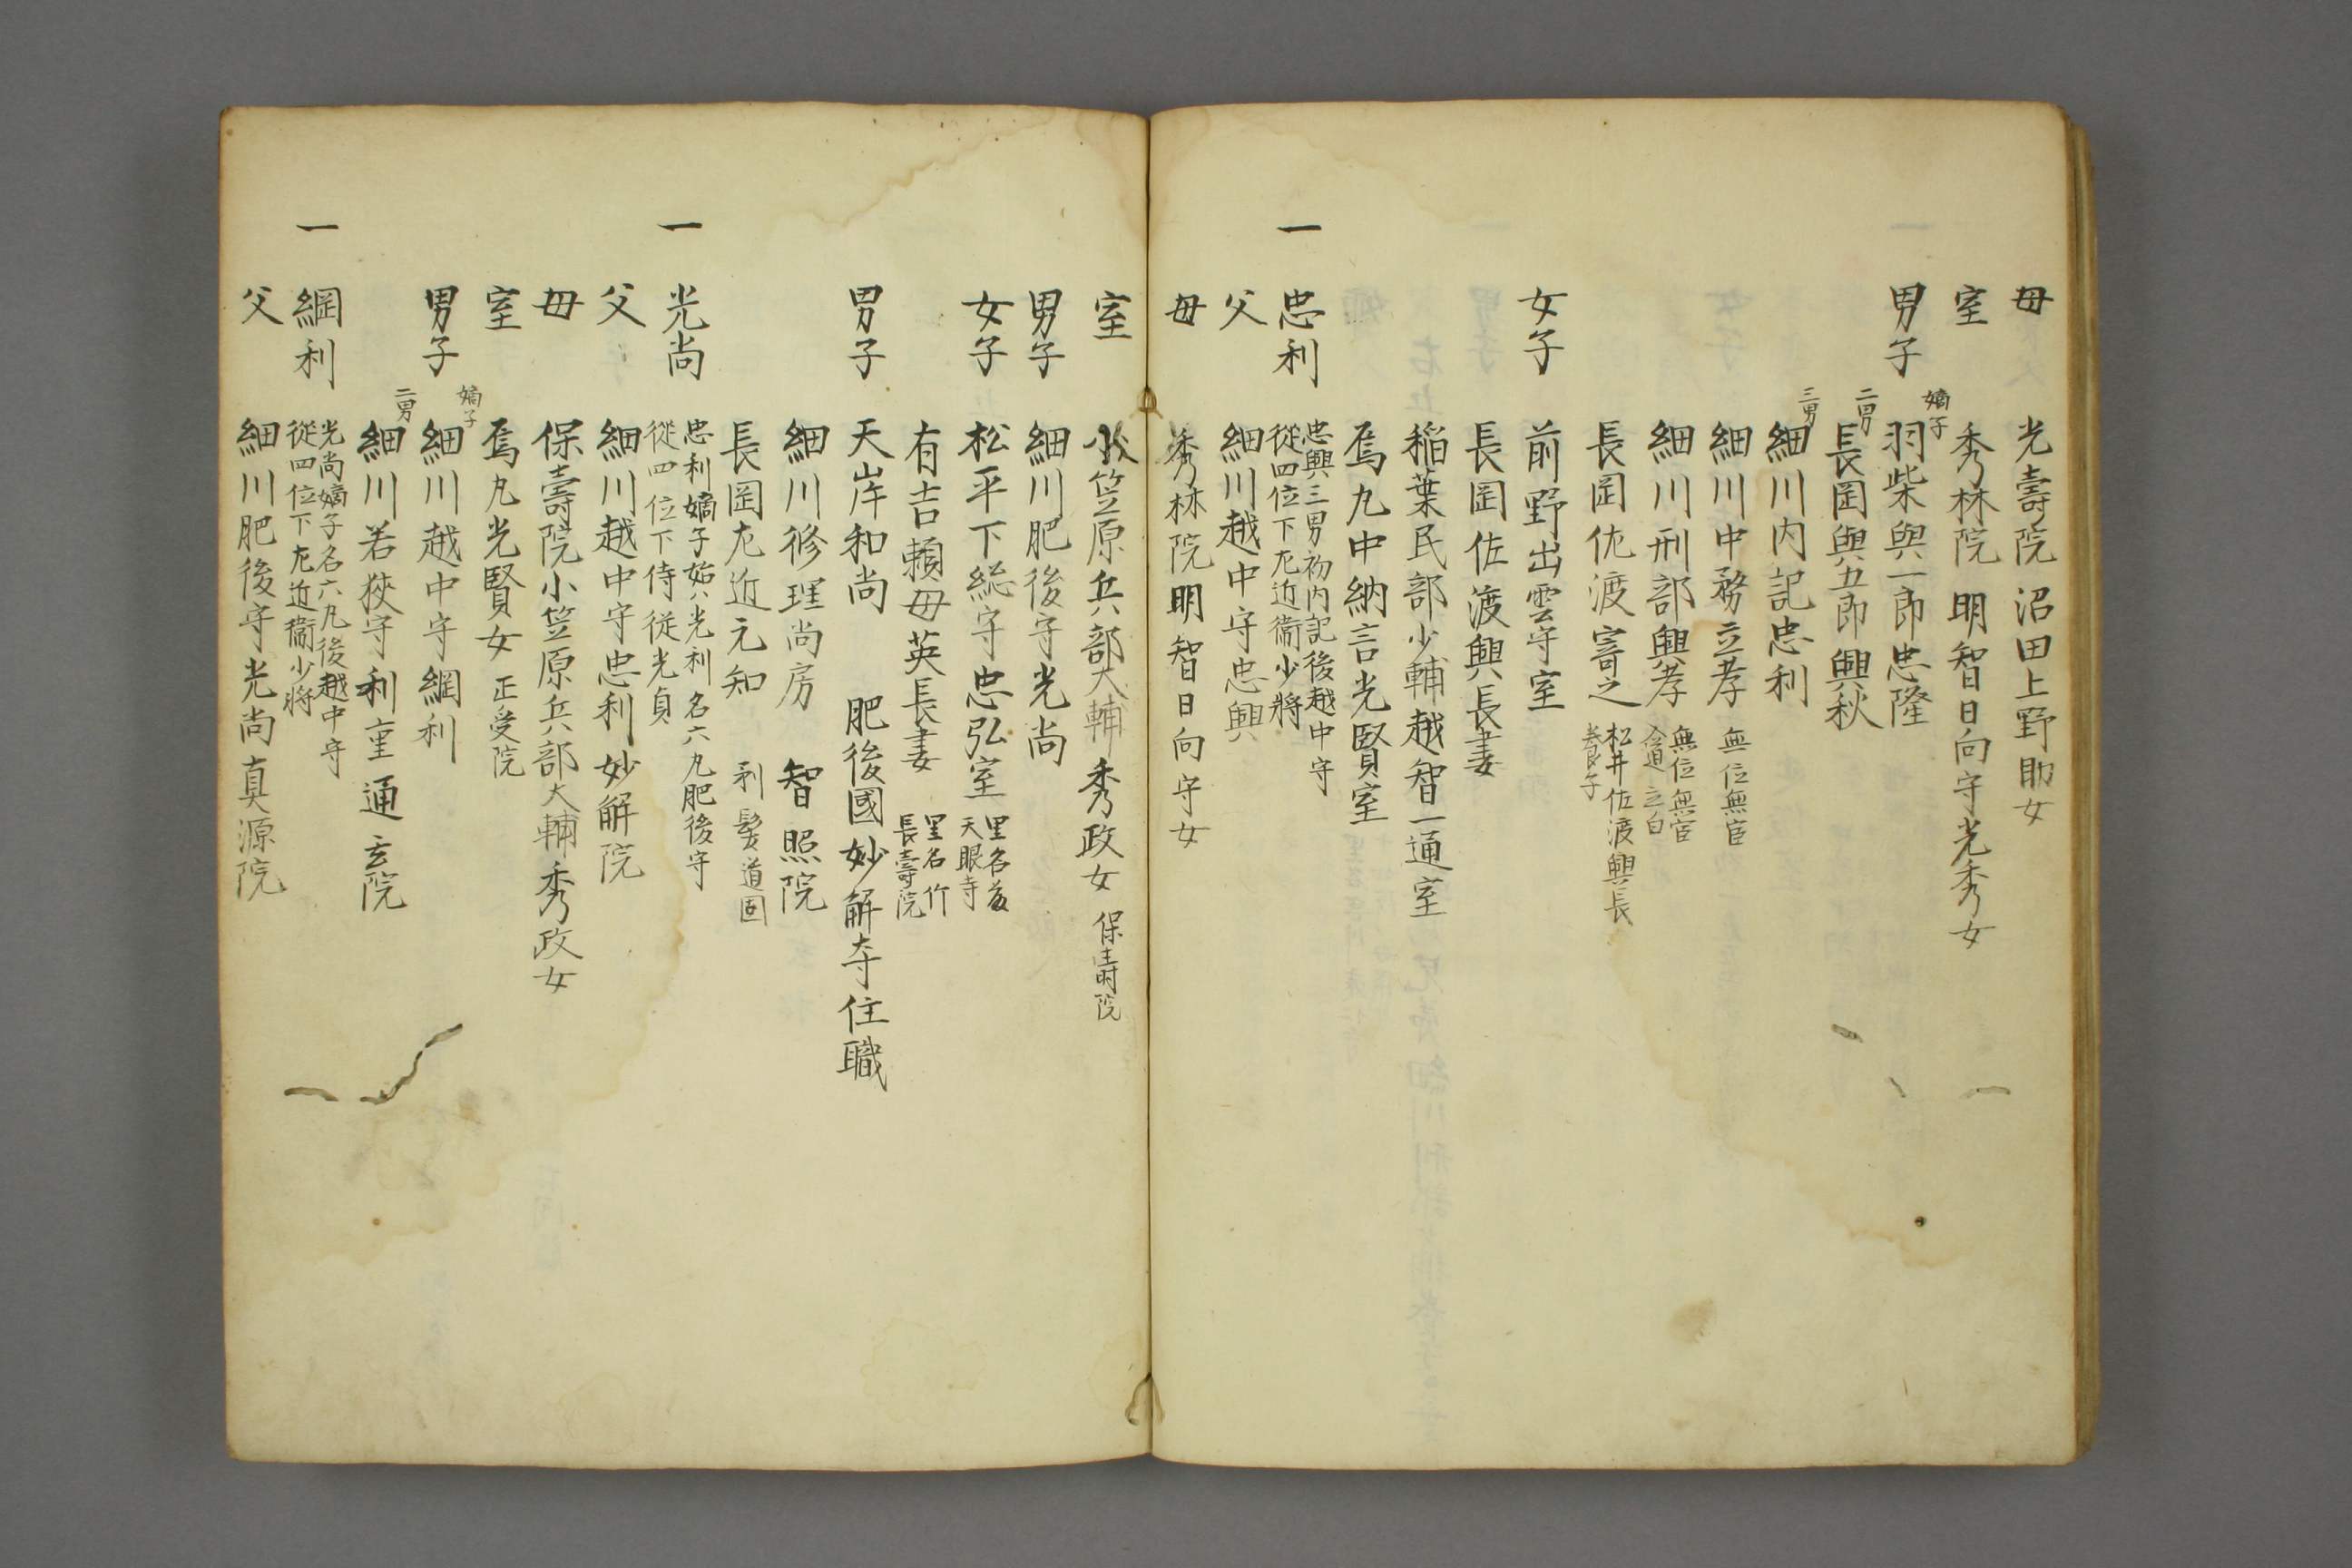 母 光壽院 沼田上野助女
室 秀林院 明智日向守光秀女
男子 嫡子 羽柴與一郎忠隆
二男 長岡與五郎興秋
三男 細川内記忠利
細川中務立孝 無位無官
細川刑部興孝 無位無官
立白
長岡佐渡寄之 松井佐渡興長
養子
女子 前野出雲守室
長岡佐渡興長妻
稲葉民部少輔越智一通室
烏丸中納言光賢室
一 忠利 忠興三男初内記後越中守
従四位下左近衛少将
父 細川越中守忠興
母 秀林院明智日向守女
室 小笠原兵部大輔秀政女 保壽院
男子 細川肥後守光尚
女子 松平下総守忠弘室 里名
天眼寺
有吉頼母英長妻 里名竹
長壽院
男子 天岸和尚 肥後國妙解寺住職
細川修理尚房 智照院
長岡左近元知 剃髪道固
一 光尚 忠利嫡子始ハ光利名六丸肥後守
従四位下侍従光貞
父 細川越中守忠利 妙解院
母 保壽院小笠原兵部大輔秀政女
室 烏丸光賢女 正受院
男子 嫡子 細川越中守綱利
二男 細川若狭守利重 通玄院
一 綱利 光尚嫡子名六丸後越中守
従四位下左近衛少将
父 細川肥後守光尚 真源院